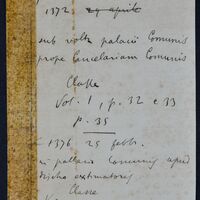 1372 29 aprile
sub volta palacii Comunis
prope Cancelariam Comunis
Classe
Vol. 1, p. 32 e 33
p. 35
1376 25 febb.
in pallacio Comunis apud
discho extimatoris
Classe